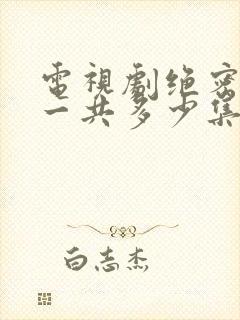 電視劇绝密
一共多少集
白志杰